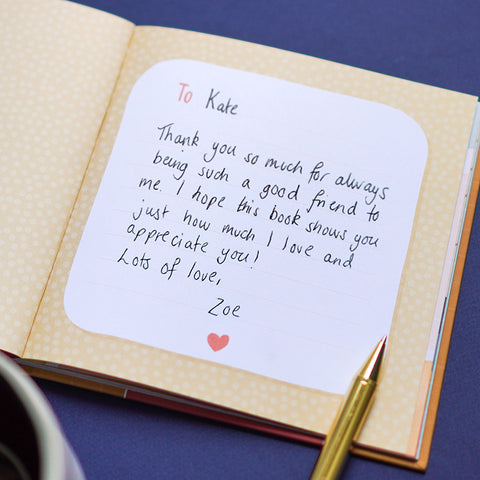 To Kate
Thank you so much for always
being such a good friend to
me. I hope this book shows you
just how much I love and
appreciate you!
Lots of love,
Zoe